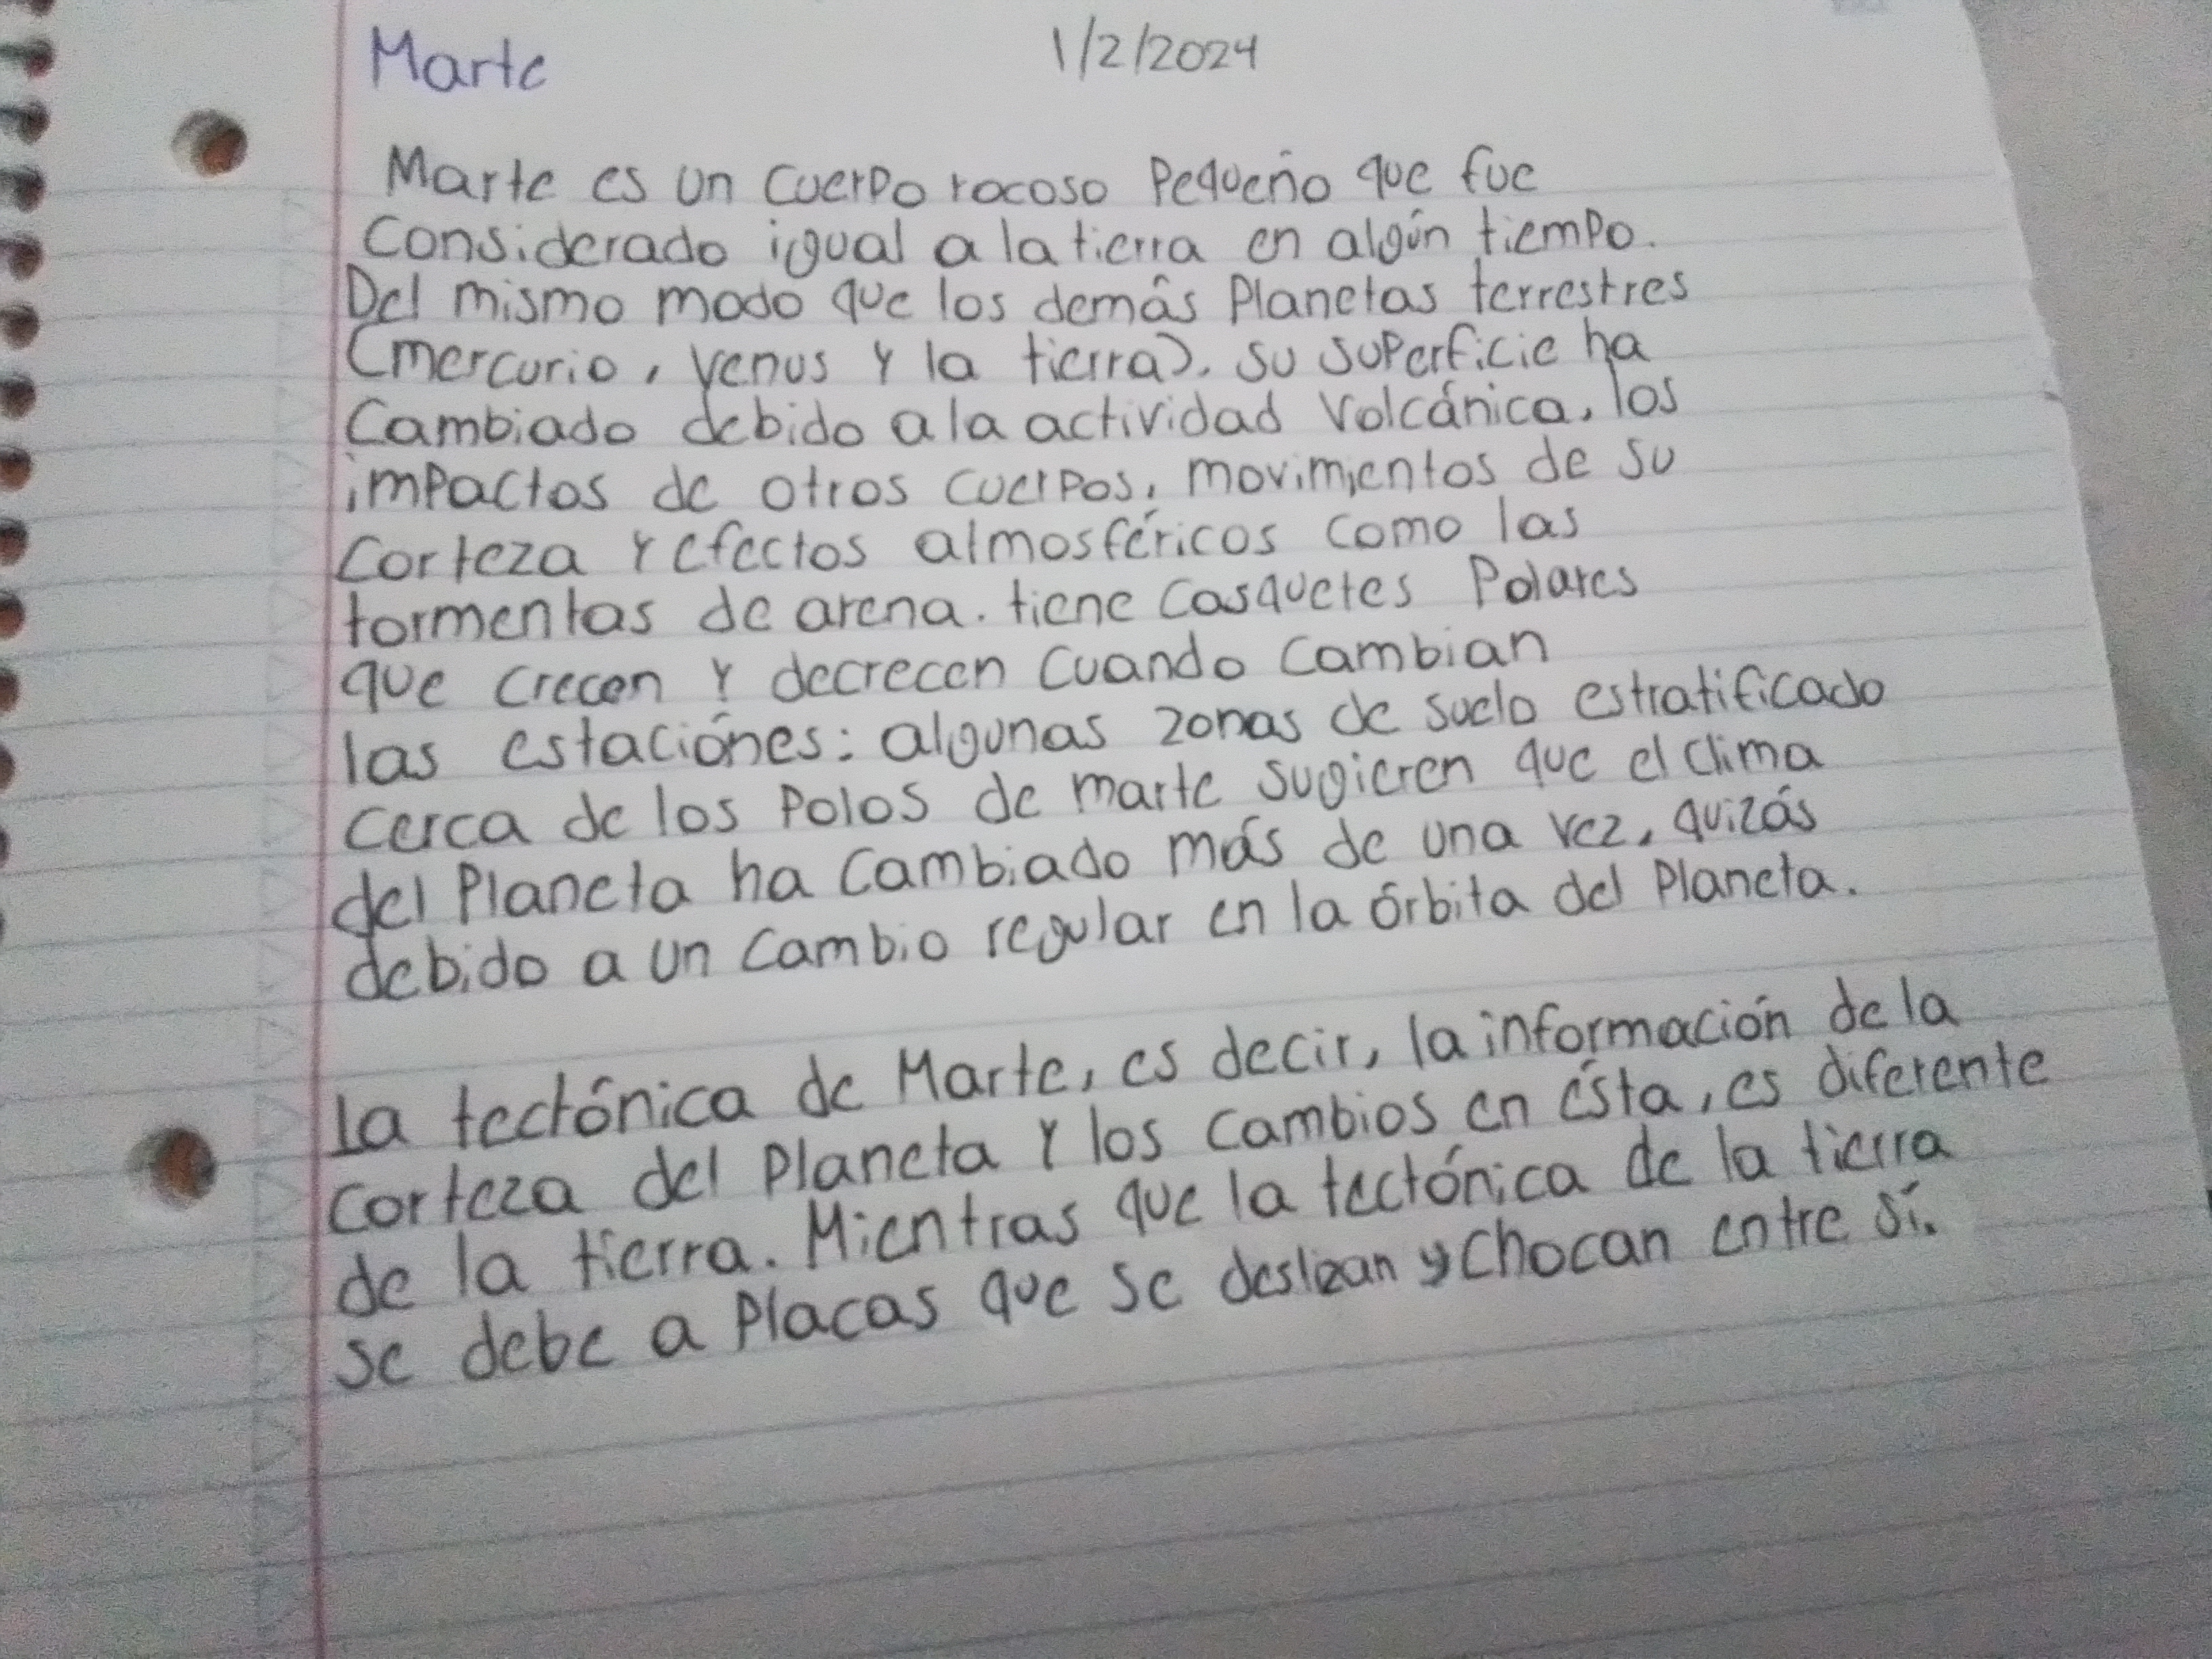 Marte 1/2/2024
Marte es un cuerpo rocoso Pequeño que fue
Considerado igual a la tierra en algún tiempo.
Del mismo modo que los demás Planetas terrestres
(mercurio, Venus y la tierra). su superficie ha
Cambiado debido a la actividad Volcánica, los
impactos de otros cuerpos, movimientos de su
Corteza y efectos almosféricos como las
tormentas de arena. tiene Casquetes Polares
que crecen y decrecen Cuando Cambian
las estaciónes: algunas zonas de suelo estratificado
cerca de los Polos de marte sugieren que el clima
del Planeta ha Cambiado más de una vez, quizás
debido a un Cambio regular en la órbita del Planeta.
La tectónica de Marte, es decir, la información de la
Corteza del Planeta y los Cambios en ésta, es diferente
de la tierra. Mientras que la tectónica de la tierra
se debe a Placas que se deslizan y Chocan entre sí.